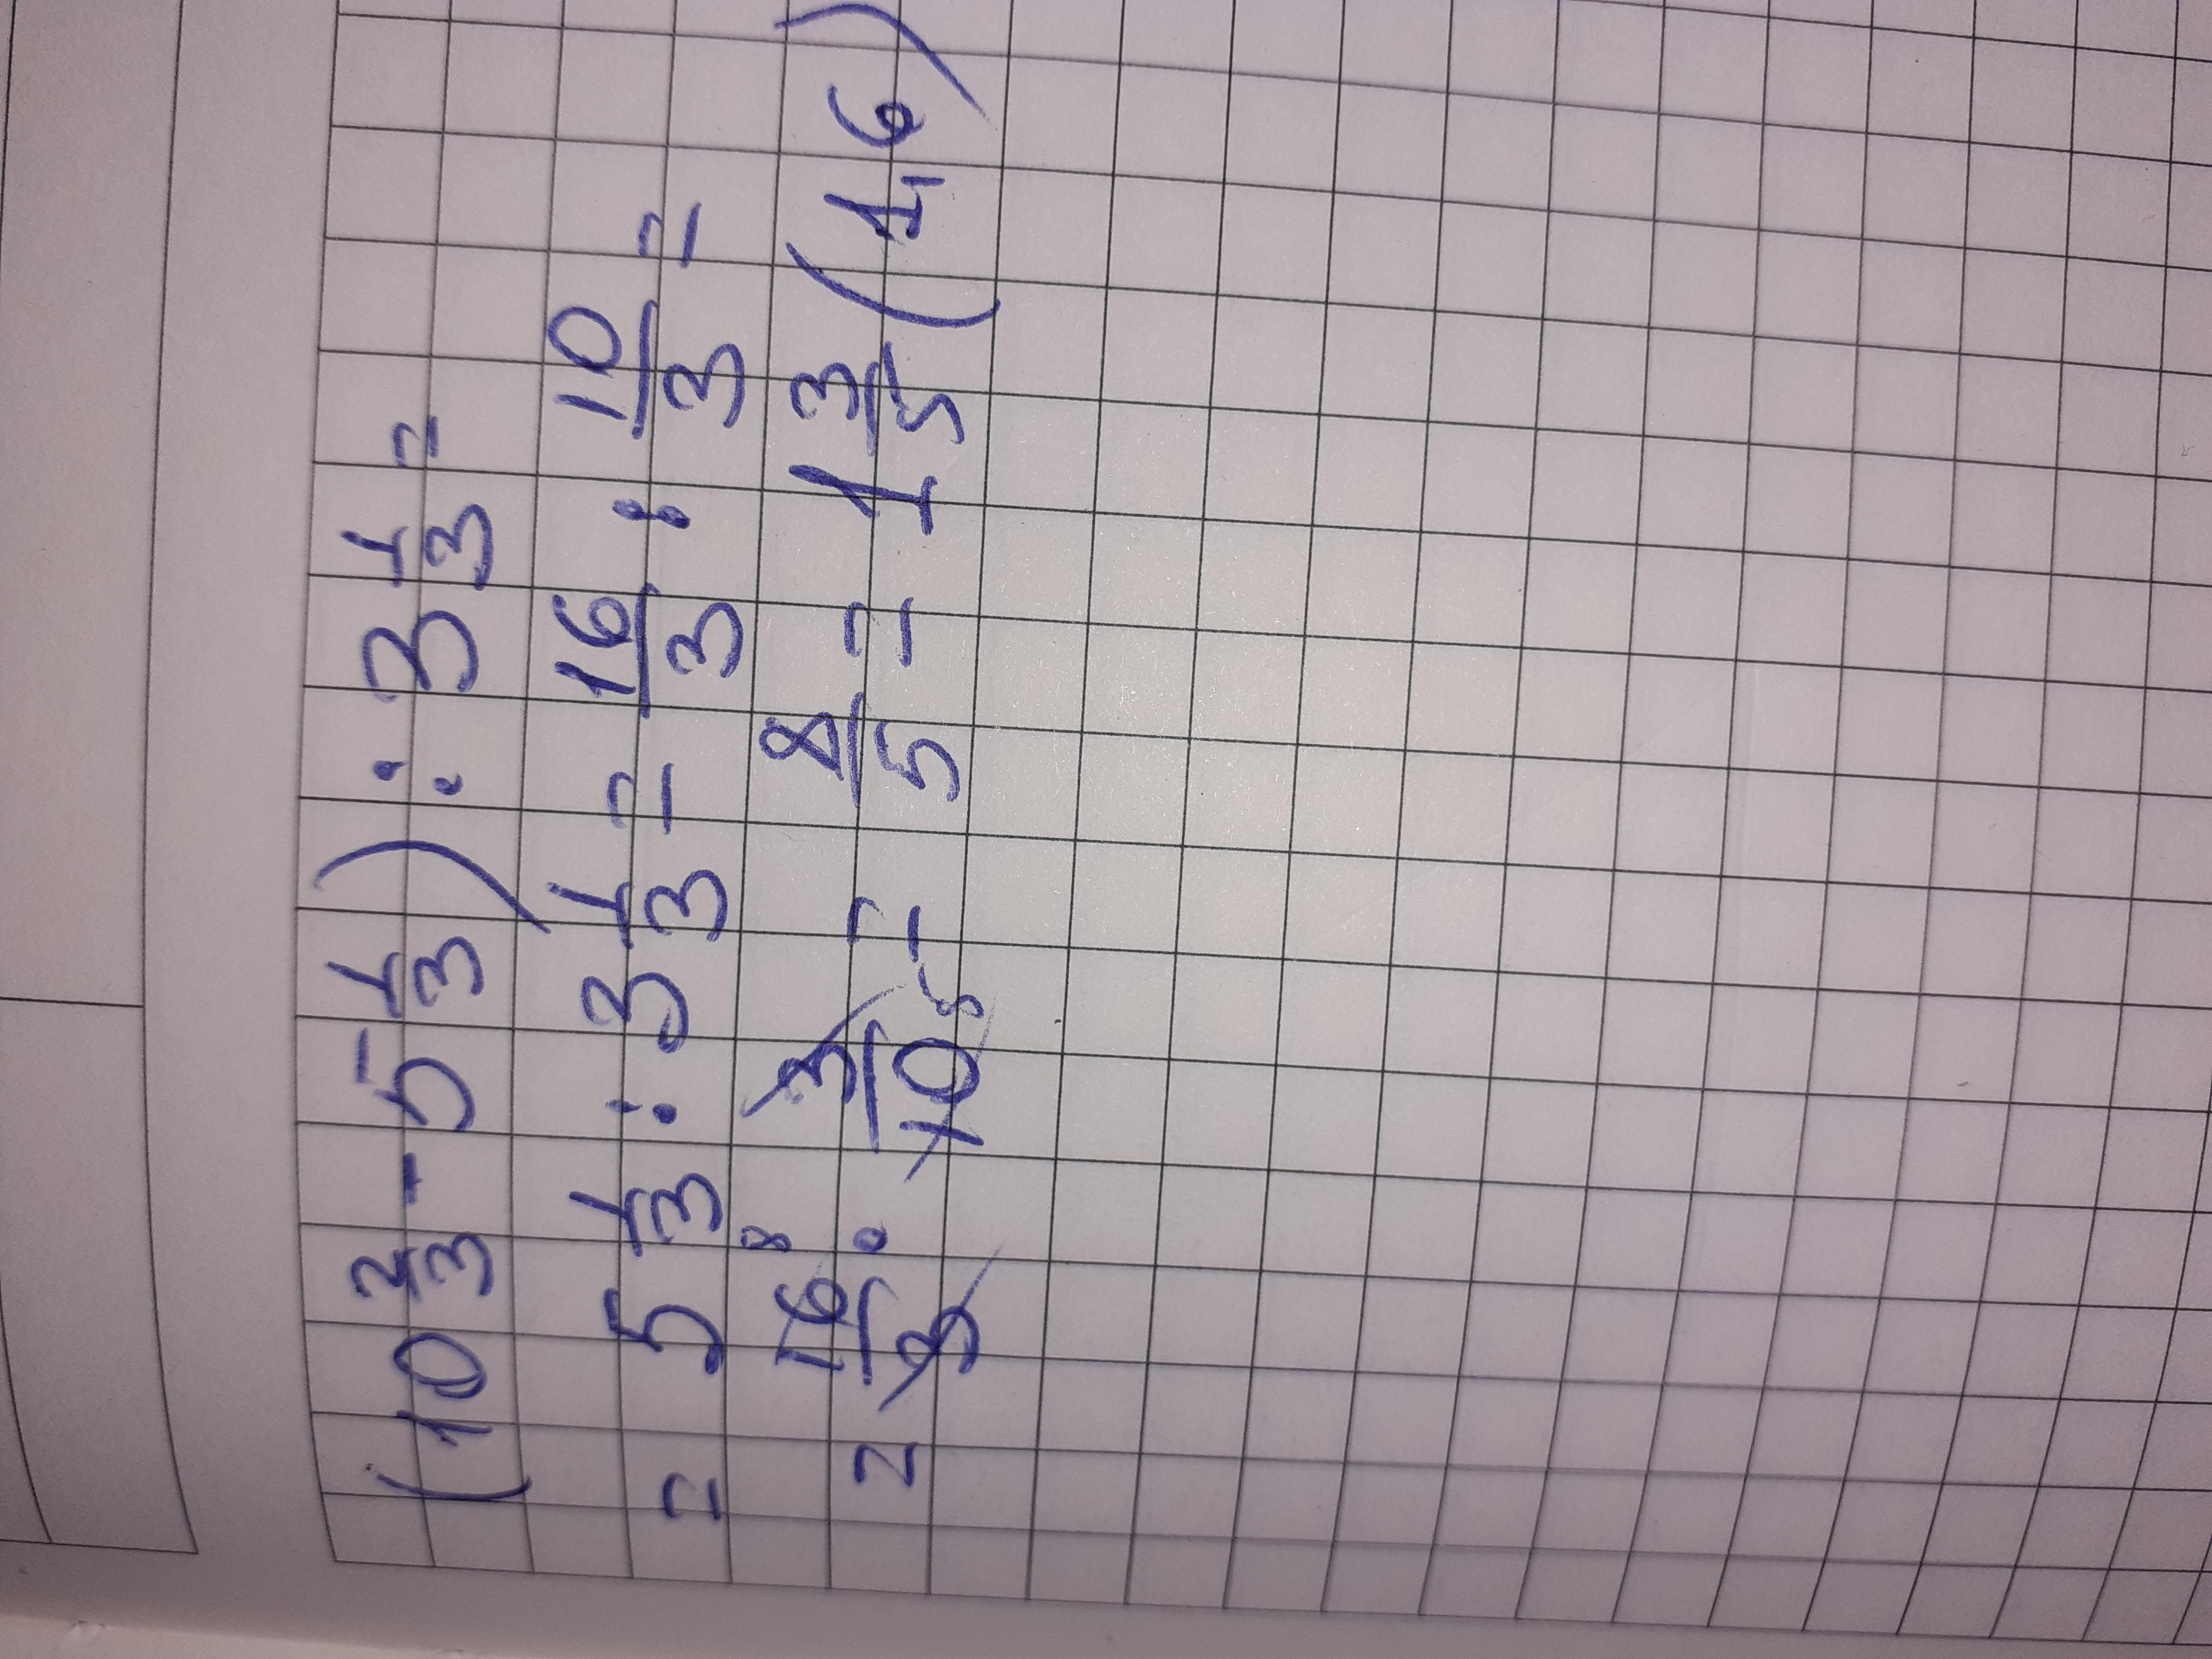 (10 2/3 - 5 1/3) : 3 1/3 =
= 5 1/3 : 3 1/3 = 16/3 : 10/3 =
= 16/3 8 · 3/10 5 = 8/5 = 1 3/5 (1,6)